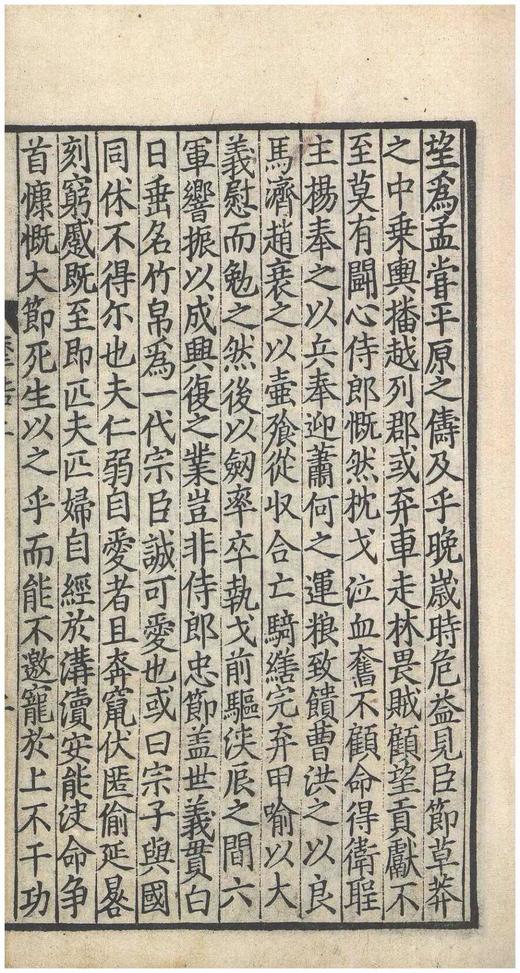 望為孟甞平原之儔及乎晚歳時危益見臣節草莽
之中乗輿播越列郡或弃車走林畏賊顧望貢獻不
至莫有鬪心侍郎慨然枕戈泣血奮不顧命得衛聖
主楊奉之以兵奉迎蕭何之運粮致饋曹洪之以良
馬濟趙衰之以壷飱從収合亡騎繕完弃甲喻以大
義慰而勉之然後以劒率卒執戈前驅浹辰之間六
軍響振以成興復之業豈非侍郎忠節盖世義貫白
日垂名竹帛為一代宗臣誠可愛也或曰宗子與國
同休不得尔也夫仁弱自愛者且奔竄伏匿偷延晷
刻窮慼既至即匹夫匹婦自經於溝瀆安能決命争
首慷慨大節死生以之乎而能不邀寵於上不干功